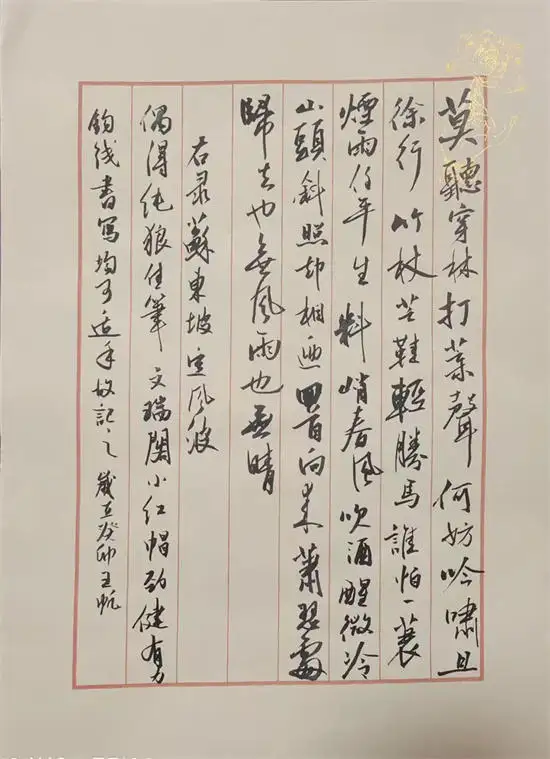 莫聽穿林打葉聲何妨吟嘯且
徐行竹杖芒鞋輕勝馬誰怕一蓑
煙雨任平生料峭春風吹酒醒微冷
山頭斜照却相迎回首向来蕭瑟處
歸去也無風雨也無晴
右录蘇東坡定风波
偶得純狼佳筆文瑞閣小红帽劲健有力
鈎线書寫均可适手故記之歲在癸卯王帆